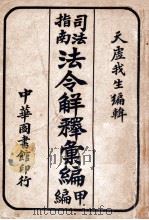 天虛我生編輯
司法指南
法令解釋彙編
甲編
中華圖書館印行